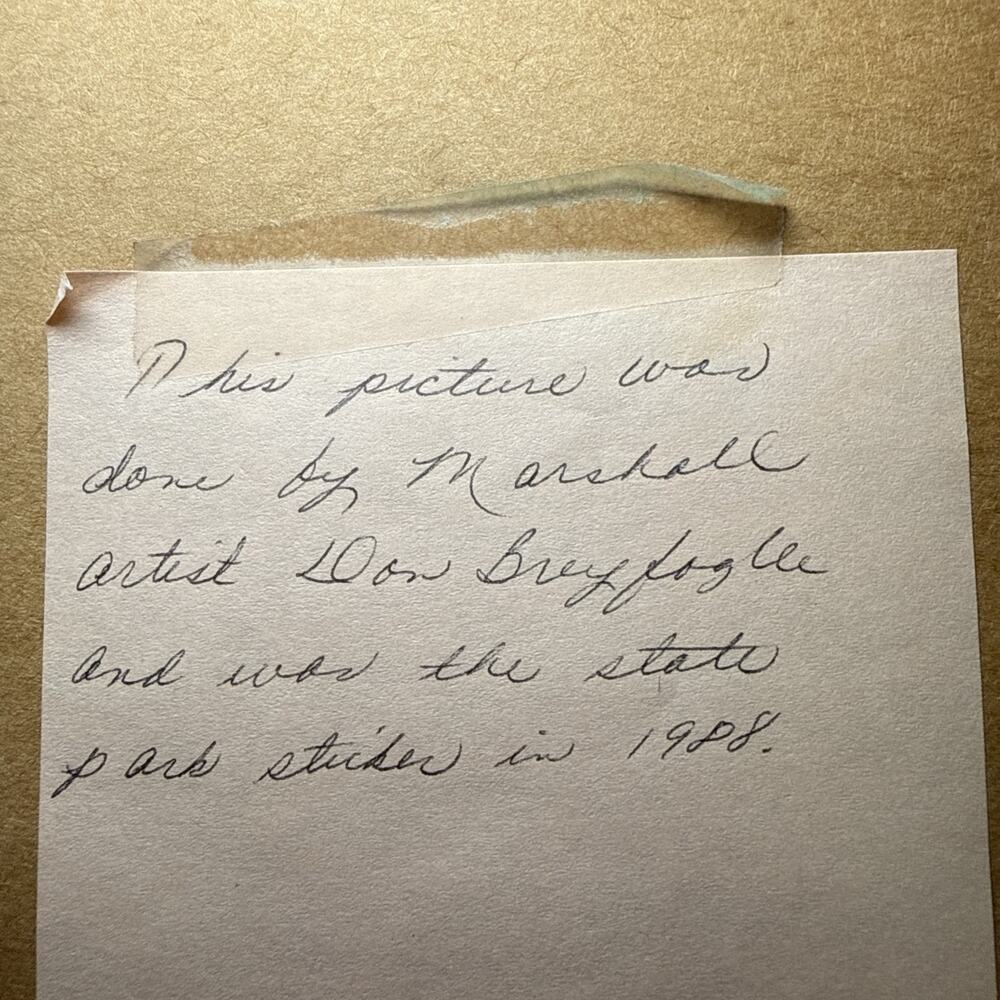 This picture was
done by Marshall
artist Don Breyfogle
and was the state
park sticker in 1988.